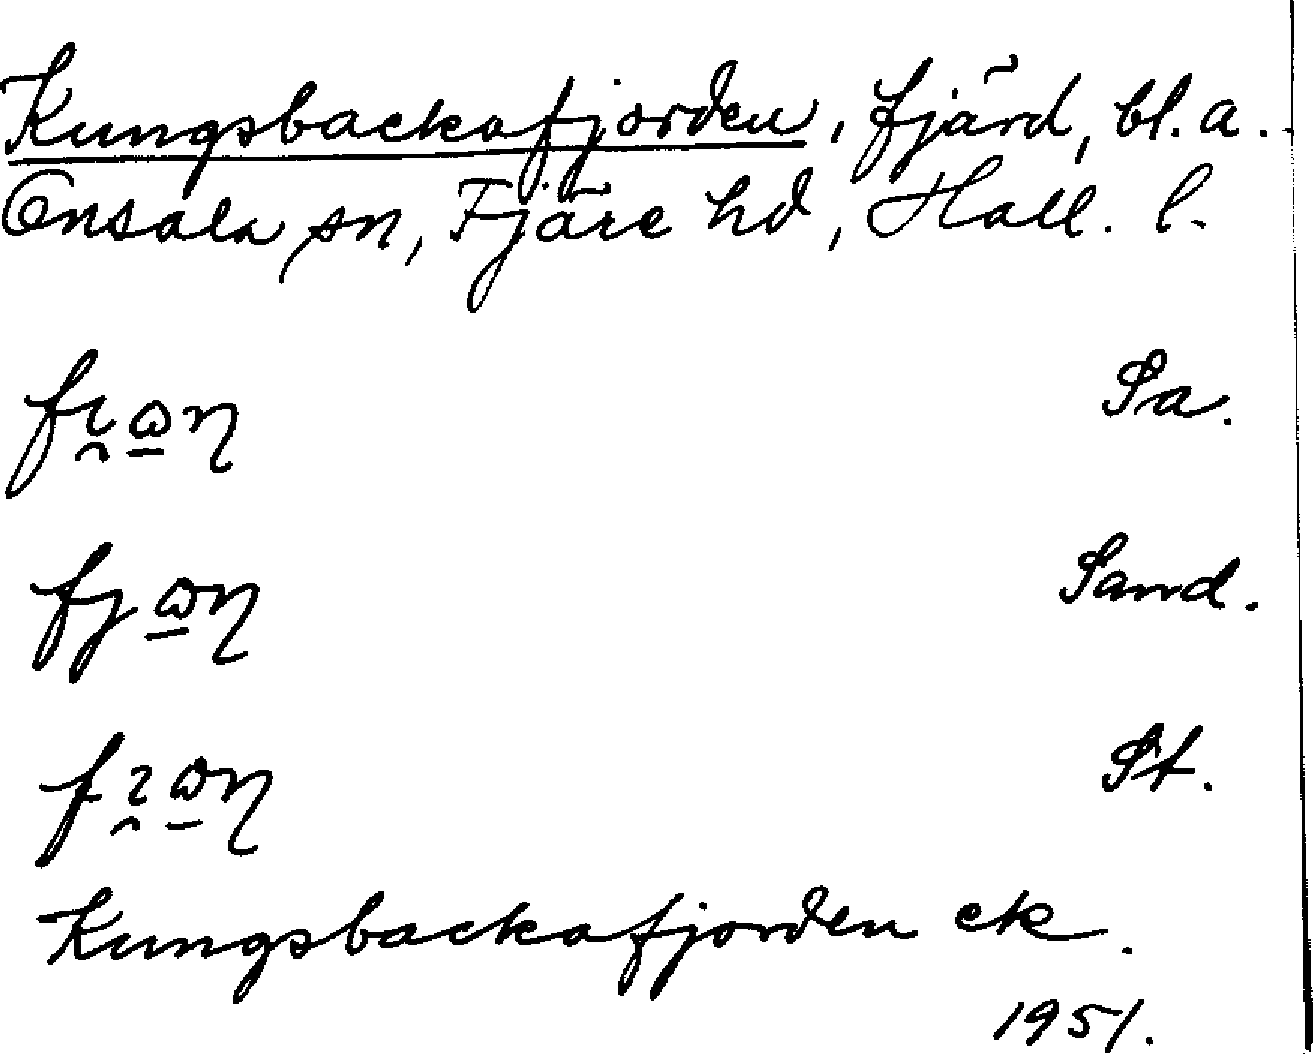 Kungsbackafjorden, fjärd, bl. a.
Onsala sn, Fjäre hd, Hall. l.
Sa.
fj Sand.
St.
Kungsbackafjorden ek.
1951.